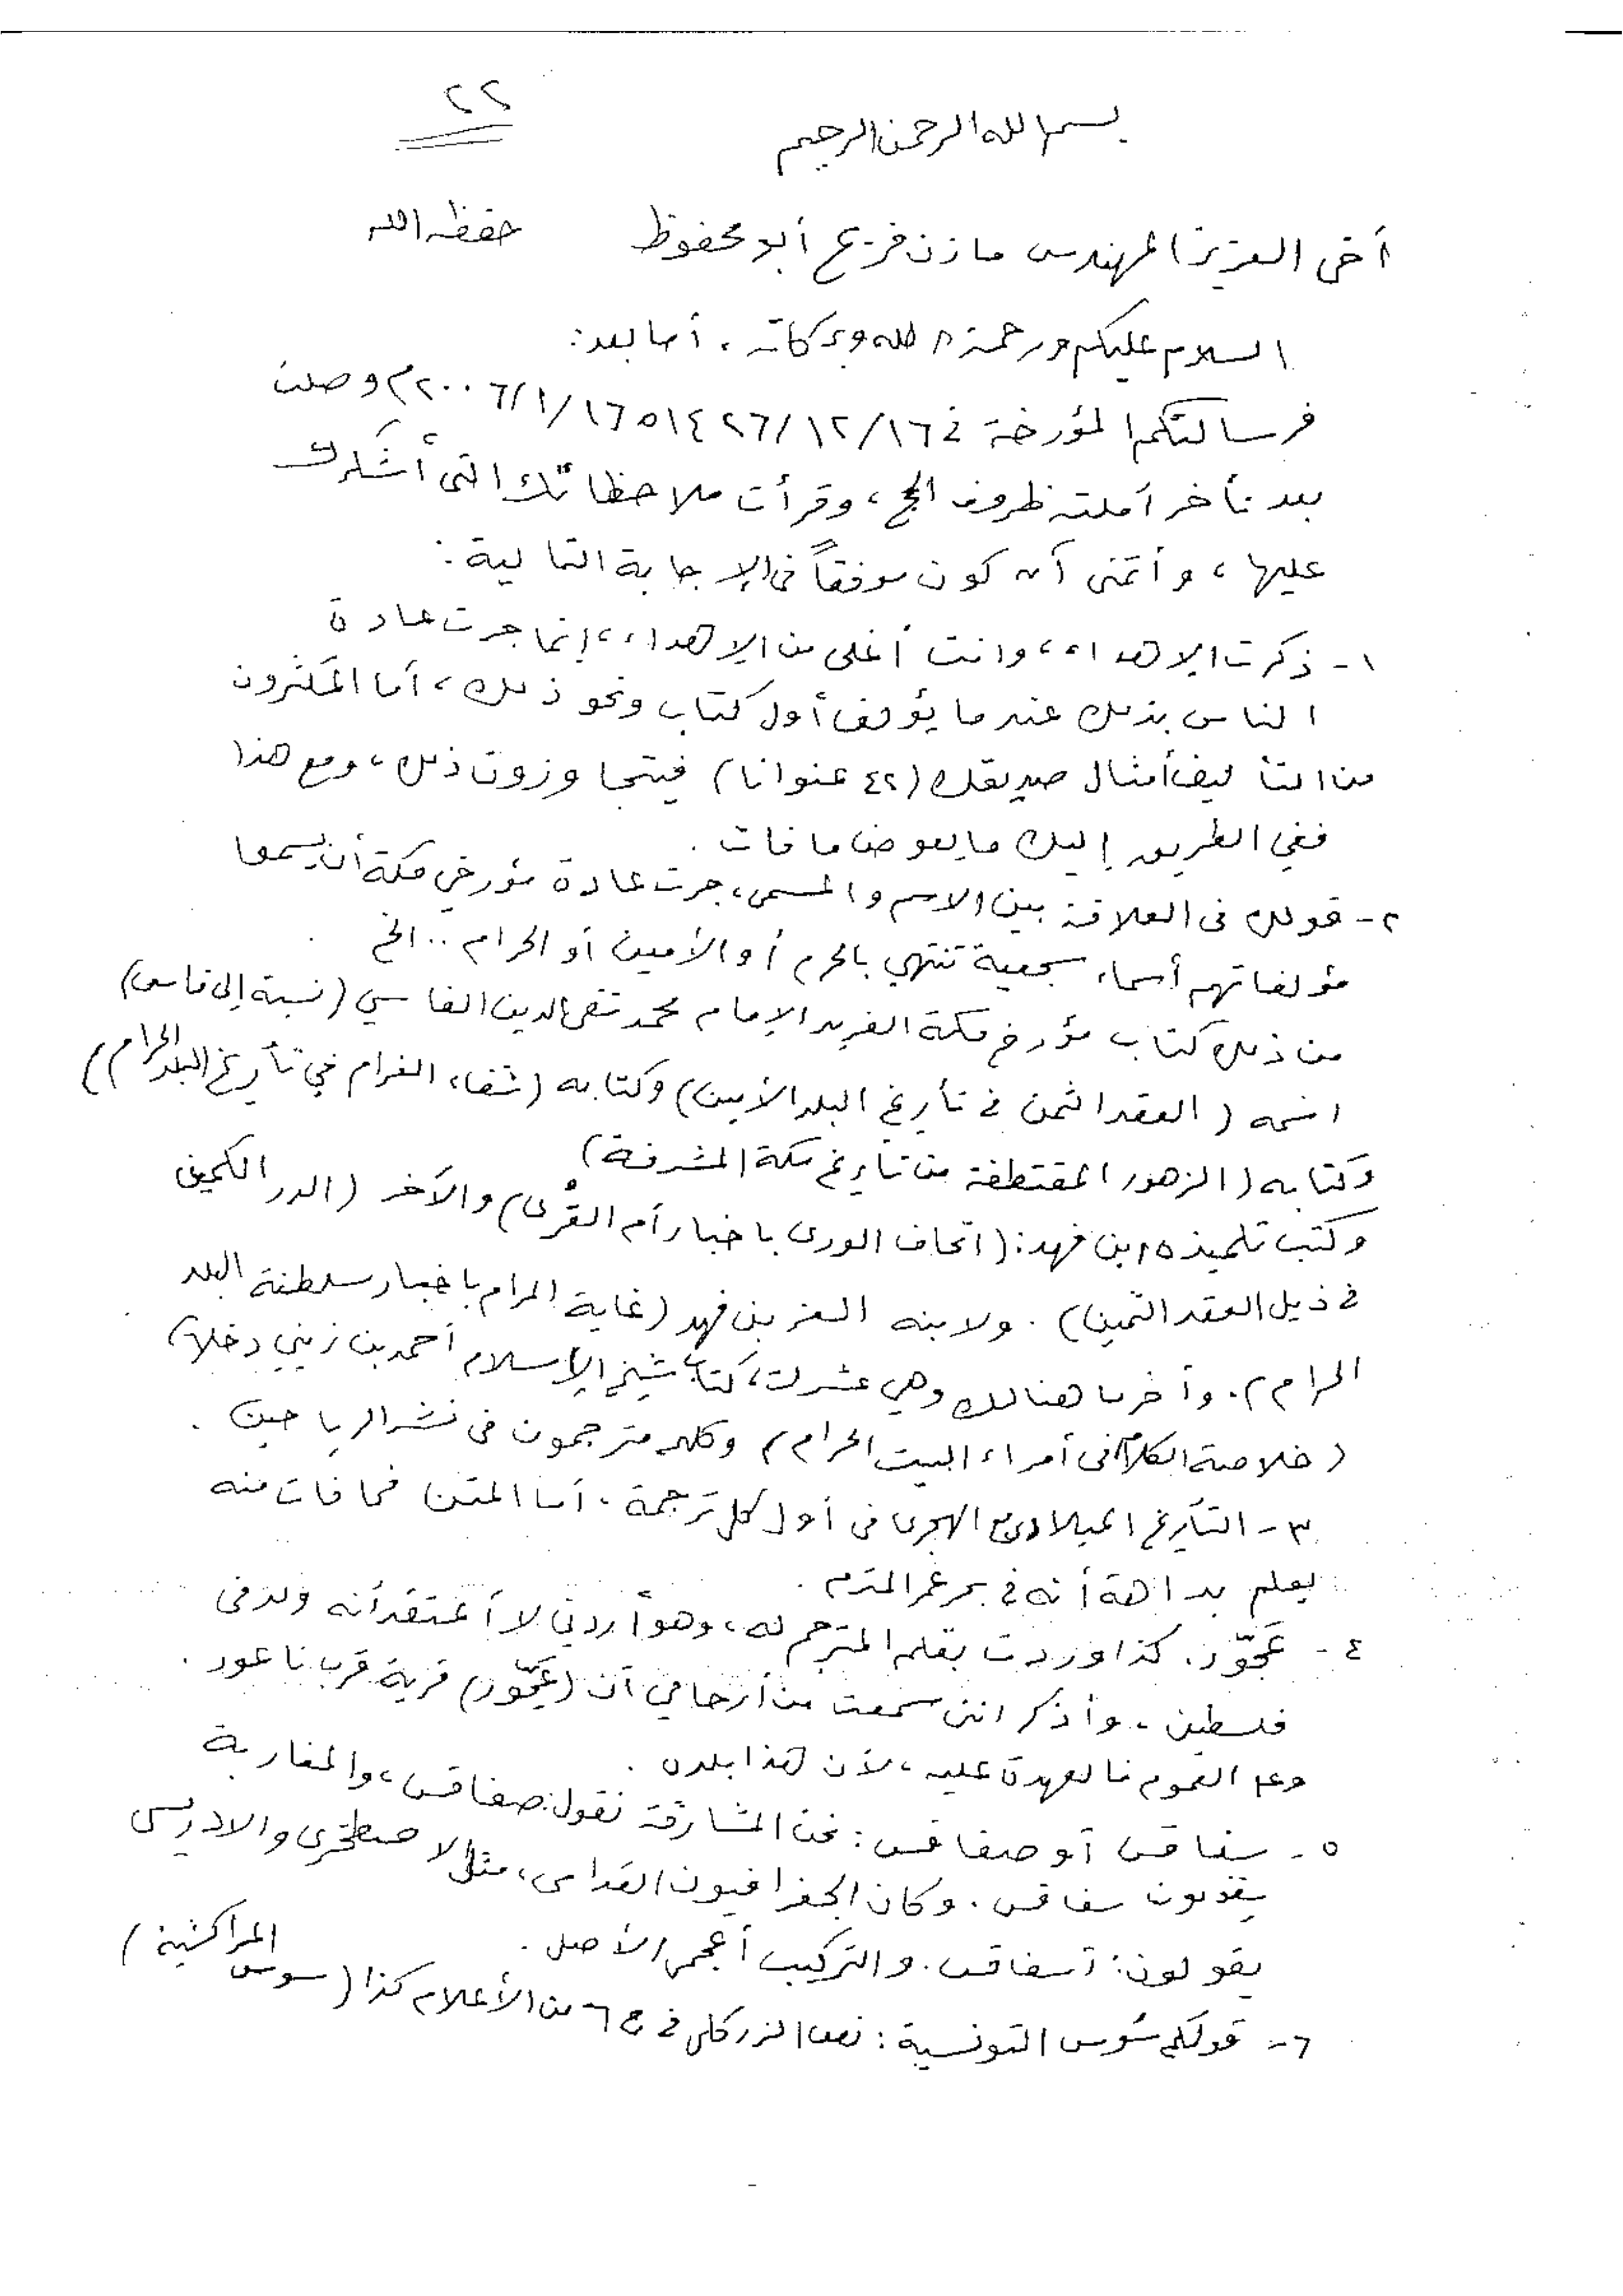 ٢٢
بسم الله الرحمن الرحيم
أخي العزيز المهندس مازن فريج أبو محفوظ حفظه الله
السلام عليكم ورحمة الله وبركاته ، أما بعد :
فرسالتكم المؤرخة في ١٤٢٦/١٢/١٦هـ ٢٠٠٦/١/١٦م وصلت
بعد تأخر أملته ظروف الحج ، وقرأت ملاحظاتك التي أشكرك
عليها ، وأتمنى أن كون موفقاً في الإجابة التالية :
١- ذكرت الإهداء ، وانت أغلى من الإهداء ، إنما جرت عادة
الناس بذلك عندما يؤلف أول كتاب ونحو ذلك ، أما المكثرون
من التأليف أمثال صديقك (٤٢ عنوانا) فيتجاوزون ذلك ، ومع هذا
ففي الطريق إليك ما يعوض ما فات .
٢- قولك في العلاقة بين الاسم والمسمى ، جرت عادة مؤرخي مكة أن يسموا
مؤلفاتهم أسماء سجعية تنتهي بالحرم أو الأمين أو الحرام .. الخ
من ذلك كتاب مؤرخ مكة الفريد الإمام محمد تقي الدين الفاسي (نسبة إلى فاس)
اسمه (العقد الثمن في تأريخ البلد الأمين) وكتابه (شفاء الغرام في تأريخ البلد الحرام)
وكتابه (الزهور المقتطفة من تأريخ مكة المشرفة)
وكتب تلميذه ابن فهد : (اتحاف الورى باخبار أم القُرى) والآخر (الدر الكمين
في ذيل العقد الثمين) . ولابنه العز بن فهد (غاية المرام باخبار سلطنة البلد
الحرام) . وأخرها هنالك وهي عشرات ، كتاب شيخ الإسلام أحمد بن زيني دحلان
(خلاصة الكلام في أمراء البيت الحرام) وكلهم مترجمون في نشر الرياحين .
٣- التأريخ الميلادي مع الهجري في أول كل ترجمة ، أما المتن فما فات منه
يعلم بداهة أنه في بحر عمر المترجم .
٤- عَجّور . كذا وردت بقلم المترجم له ، وهو أردني لا أعتقد أنه ولد في
فلسطين ، وأذكر انني سمعت من أرحامي أن (عَجّور) قرية قرب ناعور .
وعلى العموم فالعهدة عليه ، لأن هذا بلده .
٥- سفاقس أو صفاقس : نحن المشارقة نقول : صفاقس ، والمغاربة
يقولون سفاقس . وكان الجغرافيون القدامى ، مثل الاصطخري والادريسي
يقولون : أسفاقس . والتركيب أعجمي الأصل .
٦- قولكم سُوس التونسية : نص الزركلي في ج٦ من الأعلام كذا (سوس المراكشية)